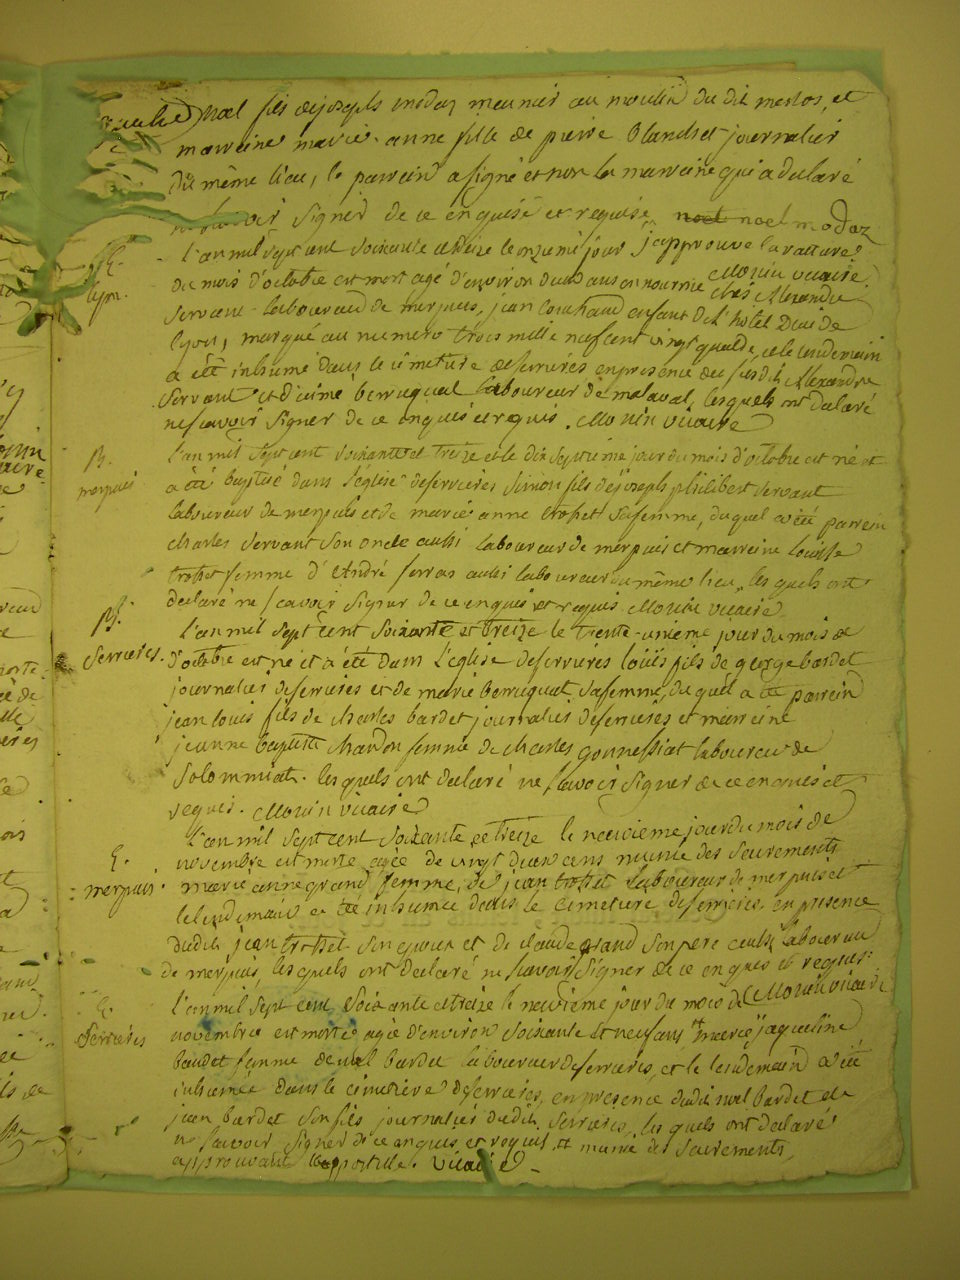 noel fils de joseph modaz meunier au moulin du dit merlos, et
marreine marie-anne fille de pierre blanchet journalier
du même lieu, le parrein a signé et non la marreine qui a déclaré
ne savoir signer de ce enquise et requise, noel noel modaz
j'approuve la rature
E.
lyon.
l'an mil sept cent soixante et treize le onzième jour
Monin vicaire
du mois d'octobre est mort agé d'environ deux ans en nourrice chés Alexandre
servant laboureur de merpuis, jean couchaud enfant de l'hotel Dieu de
lyon, marqué au numero trois mille neuf cent vingt quatre, et le lendemain
a été inhumé dans le cimetiere de serrières en presence des susdits Alexandre
servant et d' berruquat laboureur de malaval, lesquels ont déclaré
ne scavoir signer de ce enquis et requis. Monin vicaire
B.
merpuis
l'an mil sept cent soixante et treize et le dix septième jour du mois d'octobre est né et
a été baptisé dans l'église de serrières simon fils de joseph philibert servant
laboureur de merpuis et de marie anne trosset sa femme, duquel a été parrein
charles servant son oncle aussi laboureur de merpuis et marreine louise
trosset femme d'André servas aussi laboureur du même lieu, les quels ont
déclaré ne scavoir signer de ce enquis et requis Monin vicaire
B.
serrieres.
l'an mil sept cent soixante et treize le trente-unième jour du mois de
d'octobre est né et a été dans l'église de serrières loüis fils de george bardet
journalier de serrières et de marie berruquat sa femme, duquel a été parrein
jean louis fils de charles bardet journalier de serrières et marreine
jeanne baptiste chardon femme de charles gonnessiat laboureur de
solommiat. les quels ont déclaré ne scavoir signer de ce enquis et
requis. Monin vicaire
E.
merpuis
l'an mil sept cent soixante et treize le neuvième jour du mois de
novembre est morte agée de vingt deux ans munie des sacrements
marie anne grand femme, de jean trosset laboureur de merpuis et
le lendemain a été inhumée dans le cimetiere de serrières, en presence
dudit jean trosset son epoux et de claude grand son pere aussi laboureur
de merpuis, les quels ont déclaré ne scavoir signer de ce enquis et requis.
Monin vicaire
E.
serrieres
l'an mil sept cent soixante et treize le neuvième jour du mois de
novembre est morte agée d'environ soixante et neuf ans # marie jaqueline
baudet femme de noel bardet laboureur de serrières, et le lendemain a été
inhumée dans le cimetière de serrières, en presence dudit noel bardet et de
jean bardet son fils journalier dudit serrières, les quels ont déclaré
ne scavoir signer de ce enquis et requis # munie des sacrements
approuvant l'apostille. vicaire